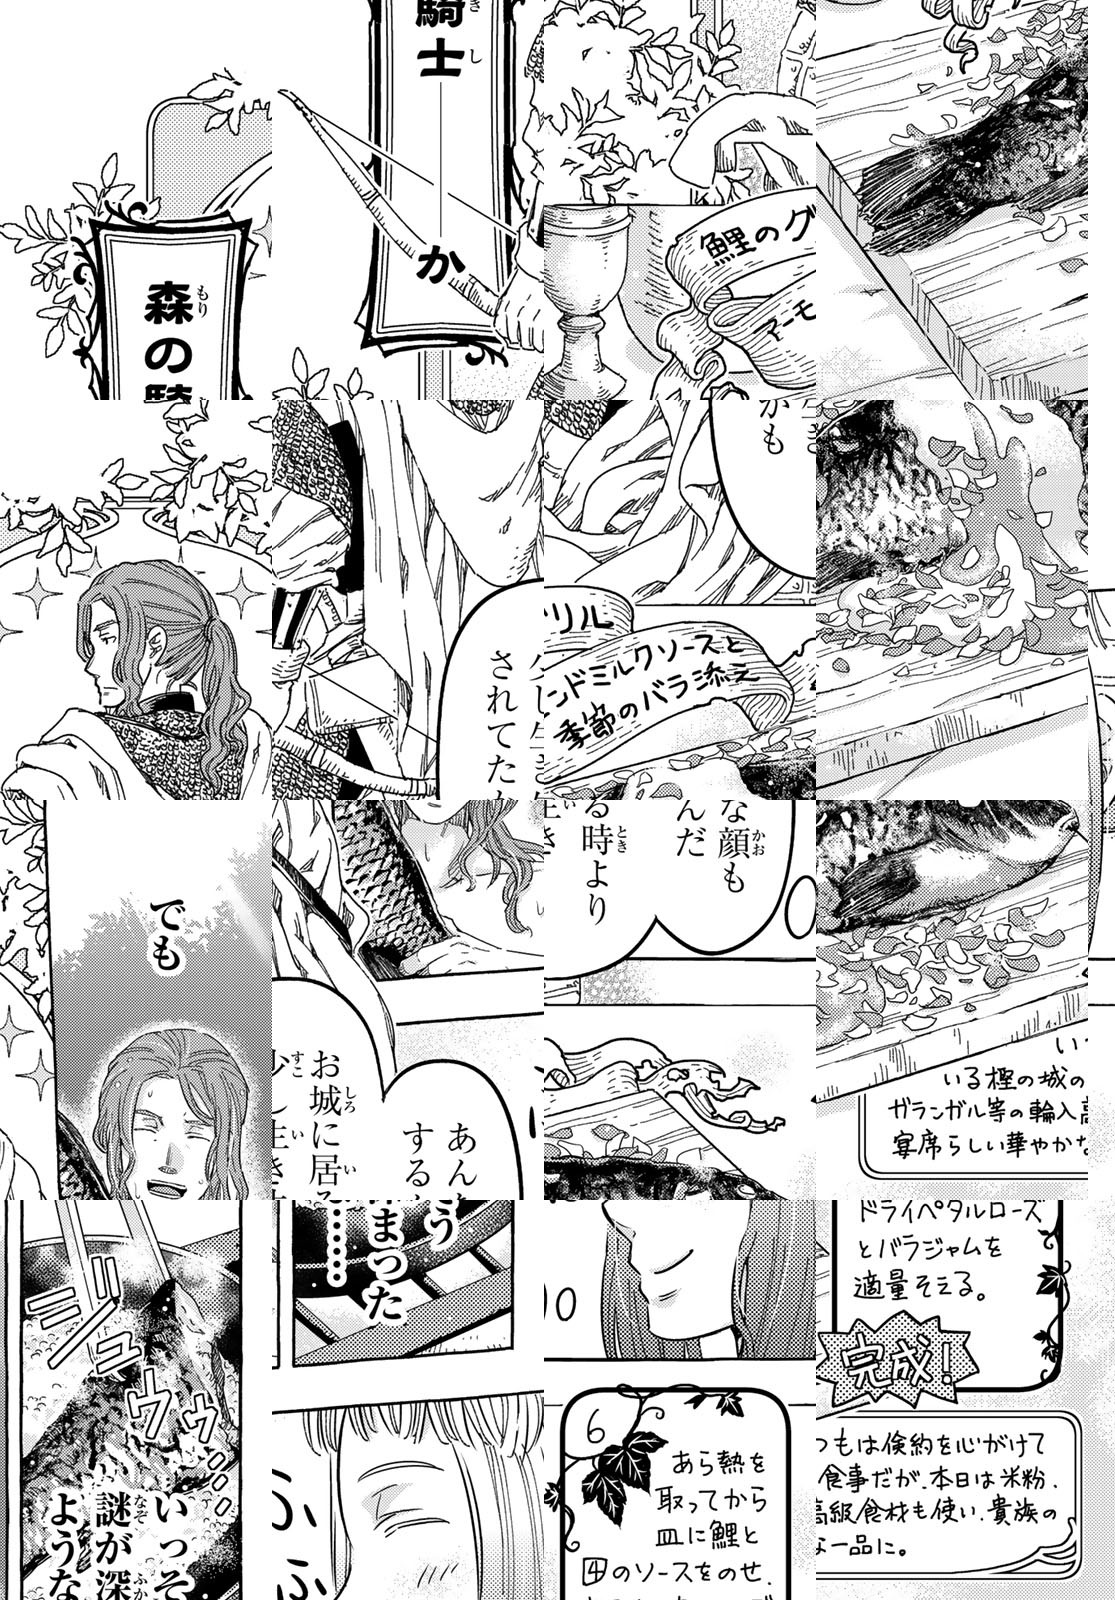 騎士――
か
森の騎
鯉のグ
マーモ
かも
リル
ンドミルクソースと
季節のバラ添え
されてた
な顔も
んだ
る時より
でも
お城に居る
少し生き
あん
する
いつ
いる樫の城の
ガランガル等の輸入高
宴席らしい華やかな
ドライペタルローズ
とバラジャムを
適量そえる。
完成！
つもは倹約を心がけて
食事だが、本日は米粉、
高級食材も使い、貴族の
な一品に。
う
まった
………
ジュウゥ…
いっそ
謎が深
ような
ふふ
6
あら熱を
取ってから
皿に鯉と
4のソースをのせ、